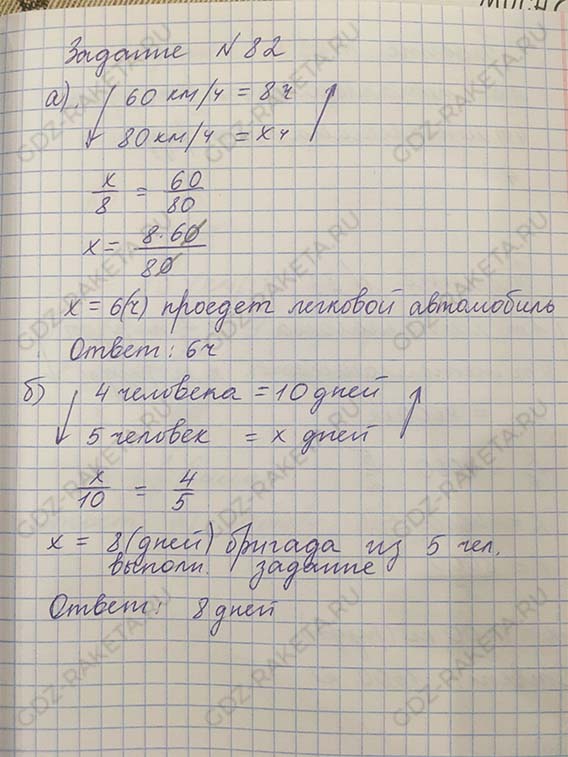 Задание №82
а). 60 км/ч = 8ч
80 км/ч = х ч
х/8 = 60/80
х = 8·60/80
х = 6(ч) проедет легковой автомобиль
Ответ: 6ч
б) 4 человека = 10 дней
5 человек = х дней
х/10 = 4/5
х = 8(дней) бригада из 5 чел.
выполн. задание
Ответ: 8 дней
GDZ-RAKETA.RU